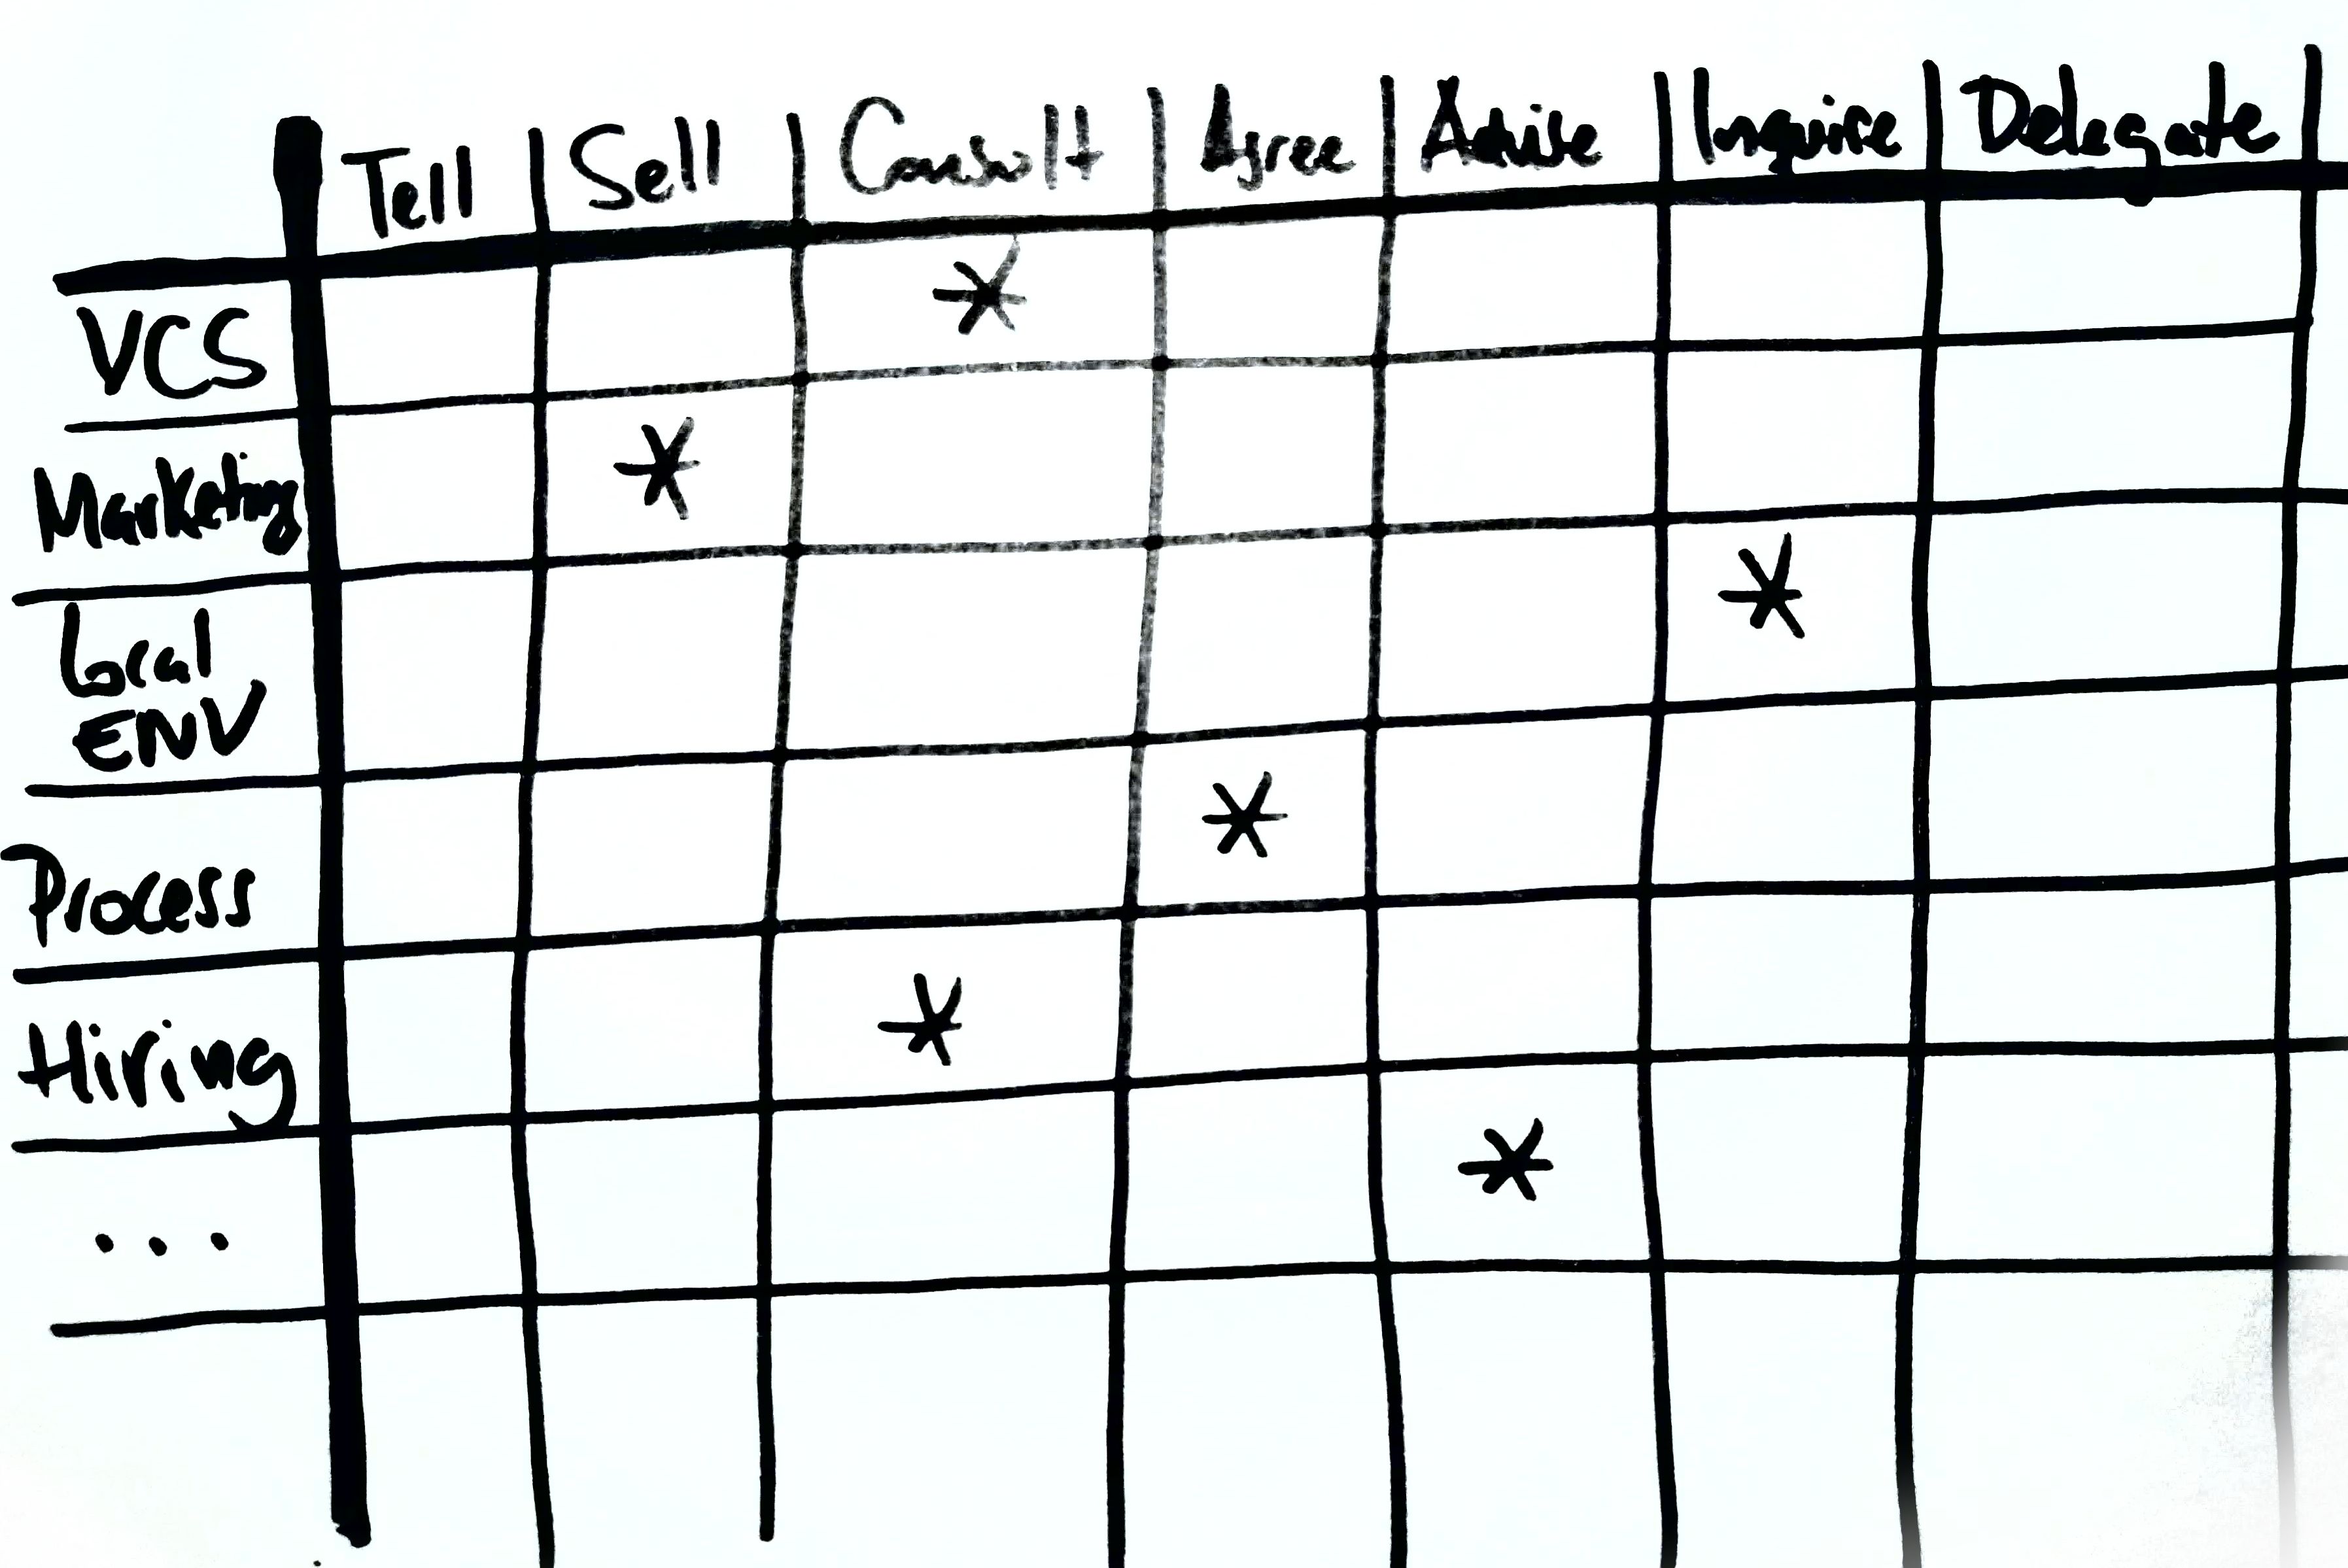 Tell Sell Consult Agree Advise Inquire Delegate
VCS *
Marketing *
Local
ENV *
Process *
Hiring *
... *